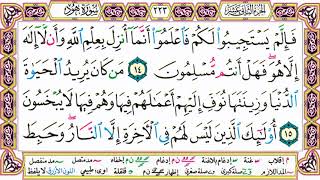 سُورَةُ هُودٍ ٢٢٣
فَإِلَّمْ يَسْتَجِيبُوا۟ لَكُمْ فَٱعْلَمُوٓا۟ أَنَّمَآ أُنزِلَ بِعِلْمِ ٱللَّهِ وَأَن لَّآ إِلَٰهَ
إِلَّا هُوَ فَهَلْ أَنتُم مُّسْلِمُونَ ١٤ مَن كَانَ يُرِيدُ ٱلْحَيَوٰةَ
ٱلدُّنْيَا وَزِينَتَهَا نُوَفِّ إِلَيْهِمْ أَعْمَٰلَهُمْ فِيهَا وَهُمْ فِيهَا لَا يُبْخَسُونَ
١٥ أُو۟لَٰٓئِكَ ٱلَّذِينَ لَيْسَ لَهُمْ فِى ٱلْءَاخِرَةِ إِلَّا ٱلنَّارُ وَحَبِطَ